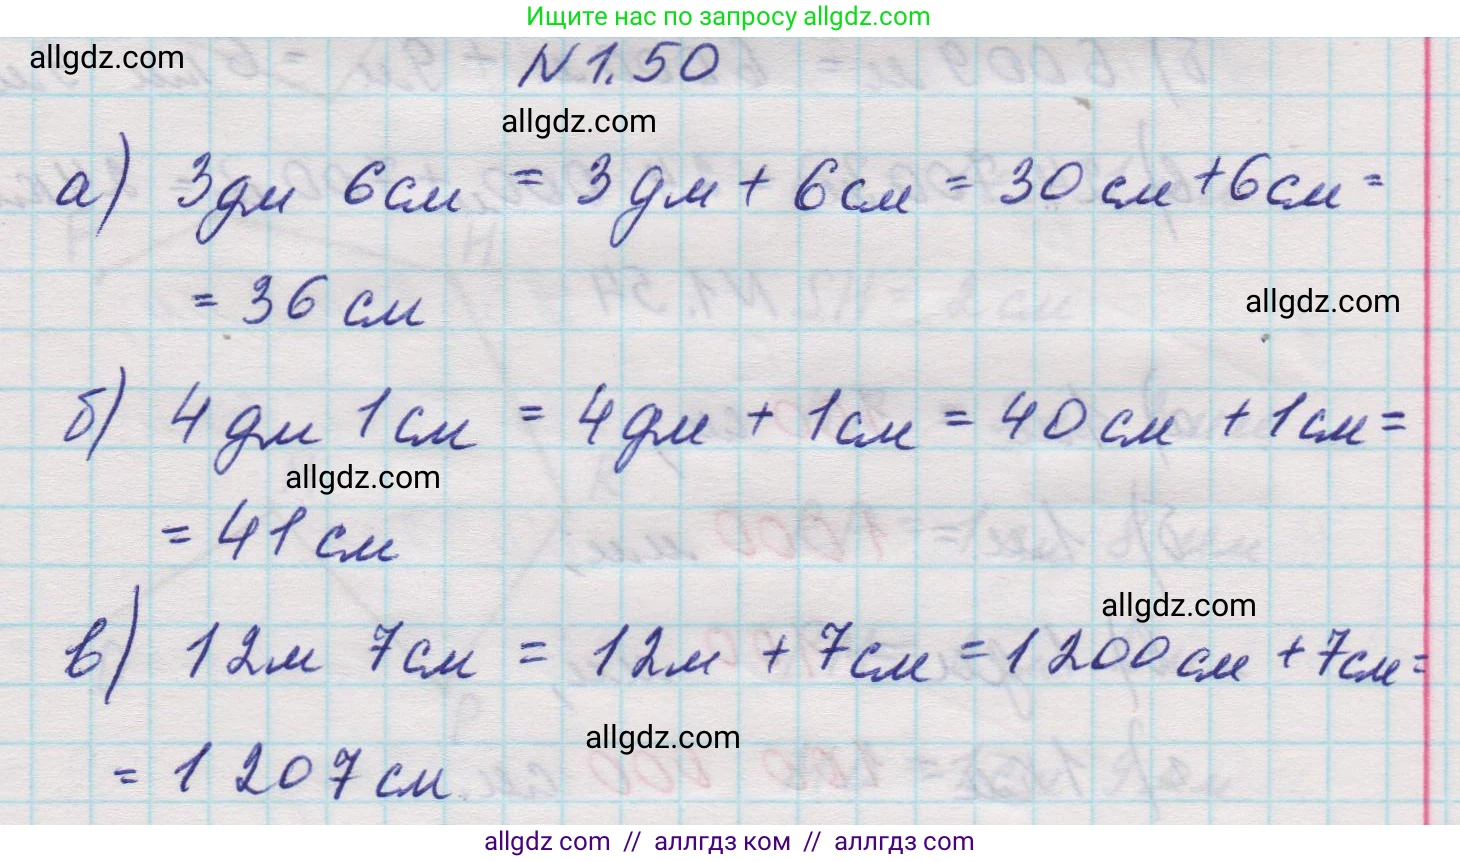 Ищите нас по запросу allgdz.com
allgdz.com
N 1.50
allgdz.com
а) 3дм 6см = 3дм + 6см = 30см + 6см =
= 36 см
allgdz.com
б) 4дм 1см = 4дм + 1см = 40см + 1см =
allgdz.com
= 41 см
allgdz.com
в) 12м 7см = 12м + 7см = 1 200см + 7см =
allgdz.com
= 1 207 см.
allgdz com // аллгдз ком // аллгдз com